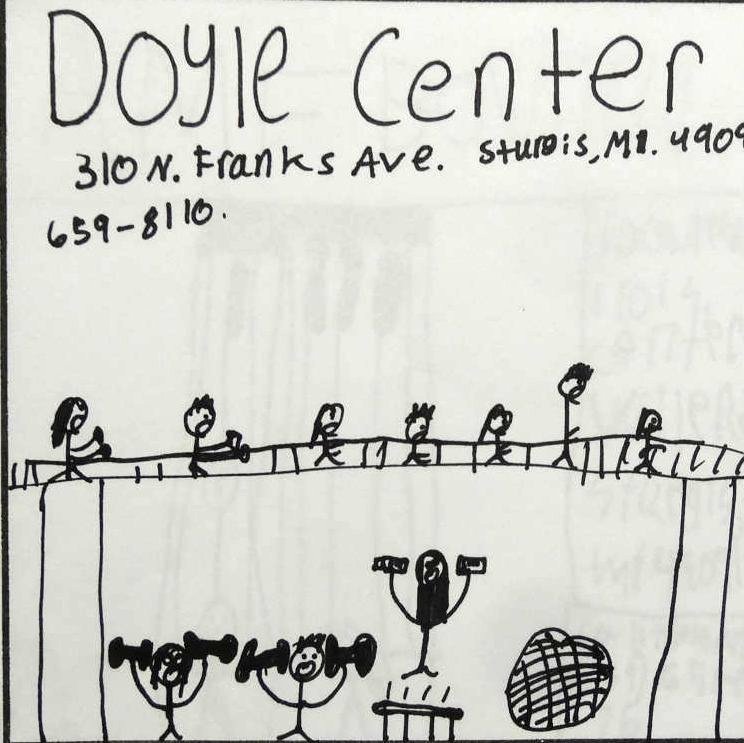 Doyle Center
310 N. Franks Ave. Sturgis, MI. 4909
659-8110.